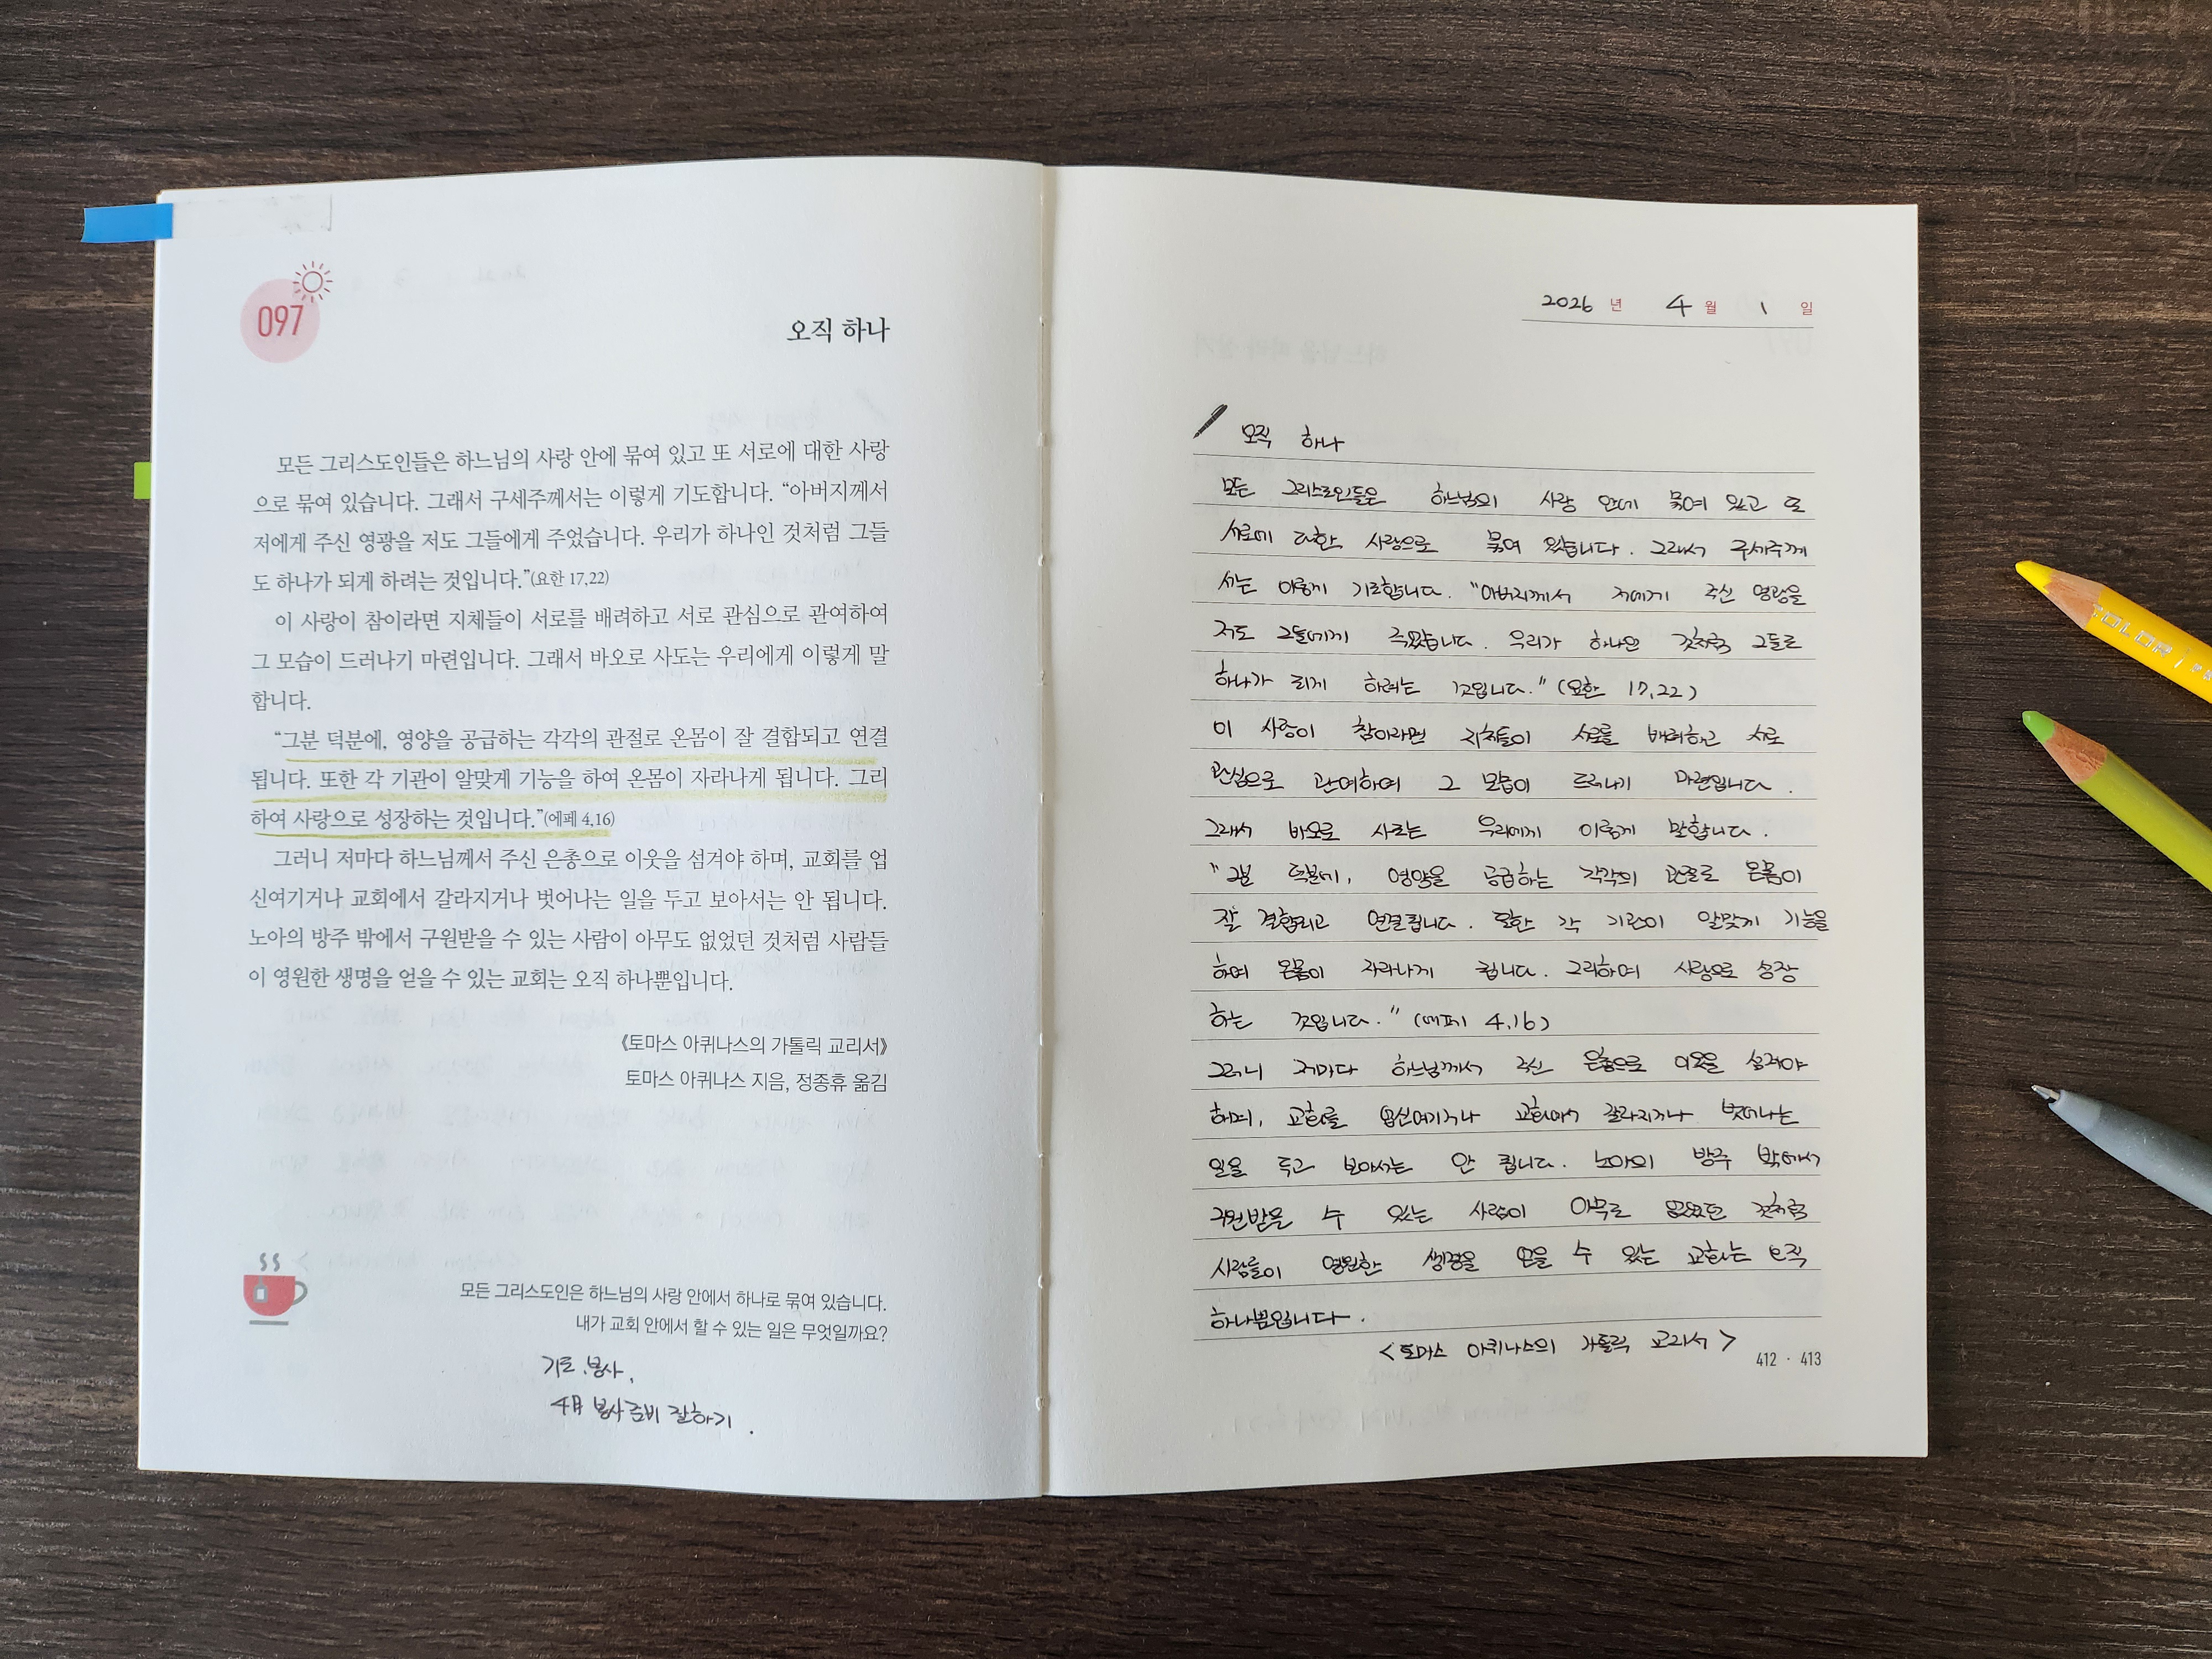 097
오직 하나
모든 그리스도인들은 하느님의 사랑 안에 묶여 있고 또 서로에 대한 사랑
으로 묶여 있습니다. 그래서 구세주께서는 이렇게 기도합니다. “아버지께서
저에게 주신 영광을 저도 그들에게 주었습니다. 우리가 하나인 것처럼 그들
도 하나가 되게 하려는 것입니다.”(요한 17,22)
이 사랑이 참이라면 지체들이 서로를 배려하고 서로 관심으로 관여하여
그 모습이 드러나기 마련입니다. 그래서 바오로 사도는 우리에게 이렇게 말
합니다.
“그분 덕분에, 영양을 공급하는 각각의 관절로 온몸이 잘 결합되고 연결
됩니다. 또한 각 기관이 알맞게 기능을 하여 온몸이 자라나게 됩니다. 그리
하여 사랑으로 성장하는 것입니다.”(에페 4,16)
그러니 저마다 하느님께서 주신 은총으로 이웃을 섬겨야 하며, 교회를 업
신여기거나 교회에서 갈라지거나 벗어나는 일을 두고 보아서는 안 됩니다.
노아의 방주 밖에서 구원받을 수 있는 사람이 아무도 없었던 것처럼 사람들
이 영원한 생명을 얻을 수 있는 교회는 오직 하나뿐입니다.
《토마스 아퀴나스의 가톨릭 교리서》
토마스 아퀴나스 지음, 정종휴 옮김
모든 그리스도인은 하느님의 사랑 안에서 하나로 묶여 있습니다.
내가 교회 안에서 할 수 있는 일은 무엇일까요?
기도, 봉사,
4月 봉사준비 잘하기.
2026 년 4 월 1 일
오직 하나
모든 그리스도인들은 하느님의 사랑 안에 묶여 있고 또
서로에 대한 사랑으로 묶여 있습니다. 그래서 구세주께
서는 이렇게 기도합니다. "아버지께서 저에게 주신 영광을
저도 그들에게 주었습니다. 우리가 하나인 것처럼 그들도
하나가 되게 하려는 것입니다." (요한 17,22)
이 사랑이 참이라면 지체들이 서로를 배려하고 서로
관심으로 관여하여 그 모습이 드러나기 마련입니다.
그래서 바오로 사도는 우리에게 이렇게 말합니다.
"그분 덕분에, 영양을 공급하는 각각의 관절로 온몸이
잘 결합되고 연결됩니다. 또한 각 기관이 알맞게 기능을
하여 온몸이 자라나게 됩니다. 그리하여 사랑으로 성장
하는 것입니다." (에페 4,16)
그러니 저마다 하느님께서 주신 은총으로 이웃을 섬겨야
하며, 교회를 업신여기거나 교회에서 갈라지거나 벗어나는
일을 두고 보아서는 안 됩니다. 노아의 방주 밖에서
구원받을 수 있는 사람이 아무도 없었던 것처럼
사람들이 영원한 생명을 얻을 수 있는 교회는 오직
하나뿐입니다.
<토마스 아퀴나스의 가톨릭 교리서>
412 · 413